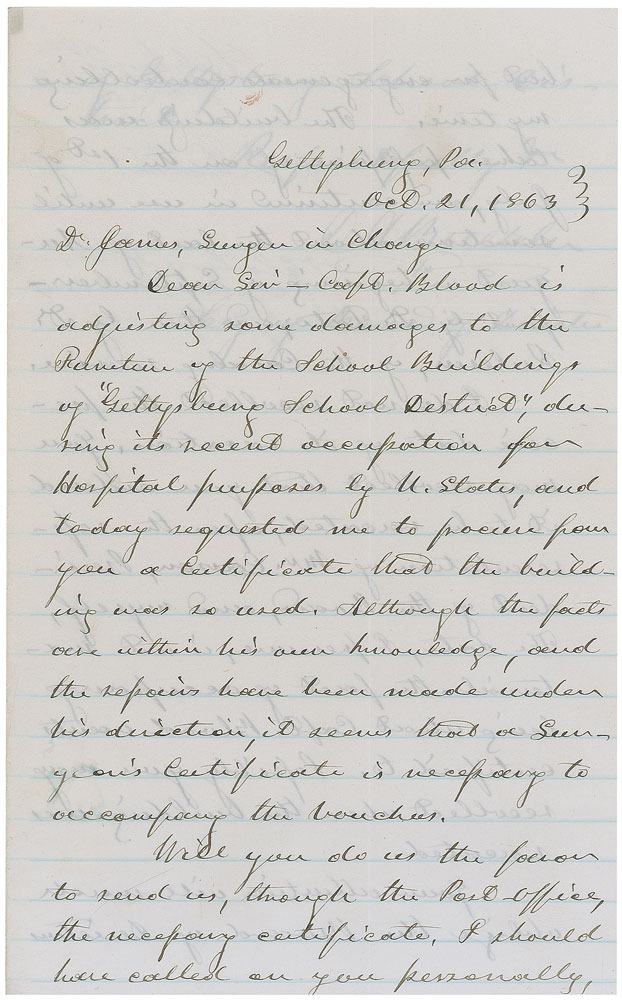 Gettysburg, Pa.
Oct. 21, 1863
Dr. James, Surgeon in Charge
Dear Sir — Capt. Blood is
adjusting some damages to the
Furniture of the School Buildings
of "Gettysburg School District", du-
ring its recent occupation for
Hospital purposes by U. States, and
to-day requested me to procure from
you a Certificate that the build-
ing was so used. Although the facts
are within his own knowledge, and
the repairs have been made under
his direction, it seems that a Sur-
geon's Certificate is necessary to
accompany the vouchers.
Will you do us the favor
to send us, through the Post-office,
the necessary certificate. I should
have called on you personally,